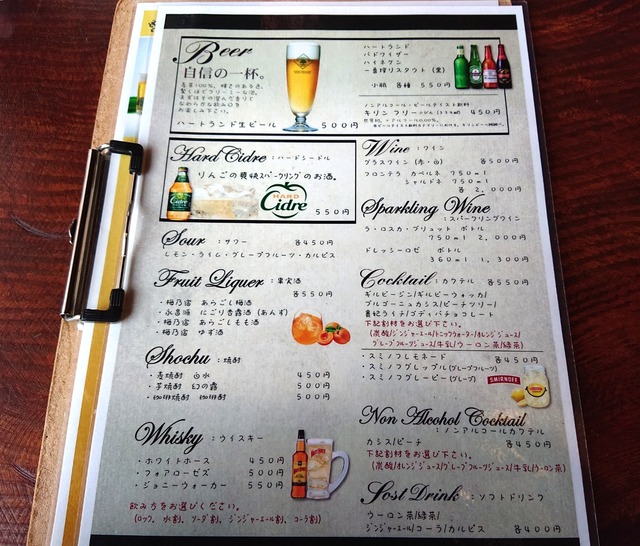 Beer
自信の一杯。
麦芽100%、
ハートランド生ビール 500円
ハートランド
バドワイザー
ハイネケン
一番搾りスタウト (黒)
小瓶 各種 550円
ノンアルコール・ビールテイスト飲料
キリンフリー 450円
Hard Cidre : ハードシードル
りんごの爽快スパークリングのお酒。
HARD
Cidre
550円
Wine : ワイン
グラスワイン (赤・白) 各500円
フロンテラ カベルネ 750ml
シャルドネ 750ml
各2,000円
Sparkling Wine
: スパークリングワイン
ラ・ロスカ・ブリュット ボトル
750ml 2,000円
ドレッシーロゼ ボトル
360ml 1,300円
Sour : サワー 各450円
レモン・ライム・グレープフルーツ・カルピス
Fruit Liquer : 果実酒
各550円
・梅乃宿 あらごし梅酒
・永昌源 にごり杏露酒 (あんず)
・梅乃宿 あらごしもも酒
・梅乃宿 ゆず酒
Shochu : 焼酎
・麦焼酎 白水 450円
・芋焼酎 幻の露 500円
・珈琲焼酎 珈酒 500円
Whisky : ウイスキー
・ホワイトホース 450円
・フォアローゼズ 500円
・ジョニーウォーカー 550円
飲み方をお選びください。
(ロック、水割、ソーダ割、ジンジャーエール割、コーラ割)
Cocktail : カクテル 各550円
ギルビージン/ギルビーウォッカ/
ブルゴーニュカシス/ピーチツリー/
貴妃ライチ/ゴディバチョコレート
下記割材をお選び下さい。
(炭酸/ジンジャーエール/トニックウォーター/オレンジジュース/
グレープフルーツジュース/牛乳/ウーロン茶/緑茶)
・スミノフレモネード 各450円
・スミノフグレップル(グレープフルーツ)
・スミノフグレーピー(グレープ)
SMIRNOFF
Non Alcohol Cocktail
: ノンアルコールカクテル
カシス/ピーチ 各450円
下記割材をお選び下さい。
(炭酸/オレンジジュース/グレープフルーツジュース/牛乳/ウーロン茶)
Sost Drink : ソフトドリンク
ウーロン茶/緑茶/
ジンジャーエール/コーラ/カルピス 各400円